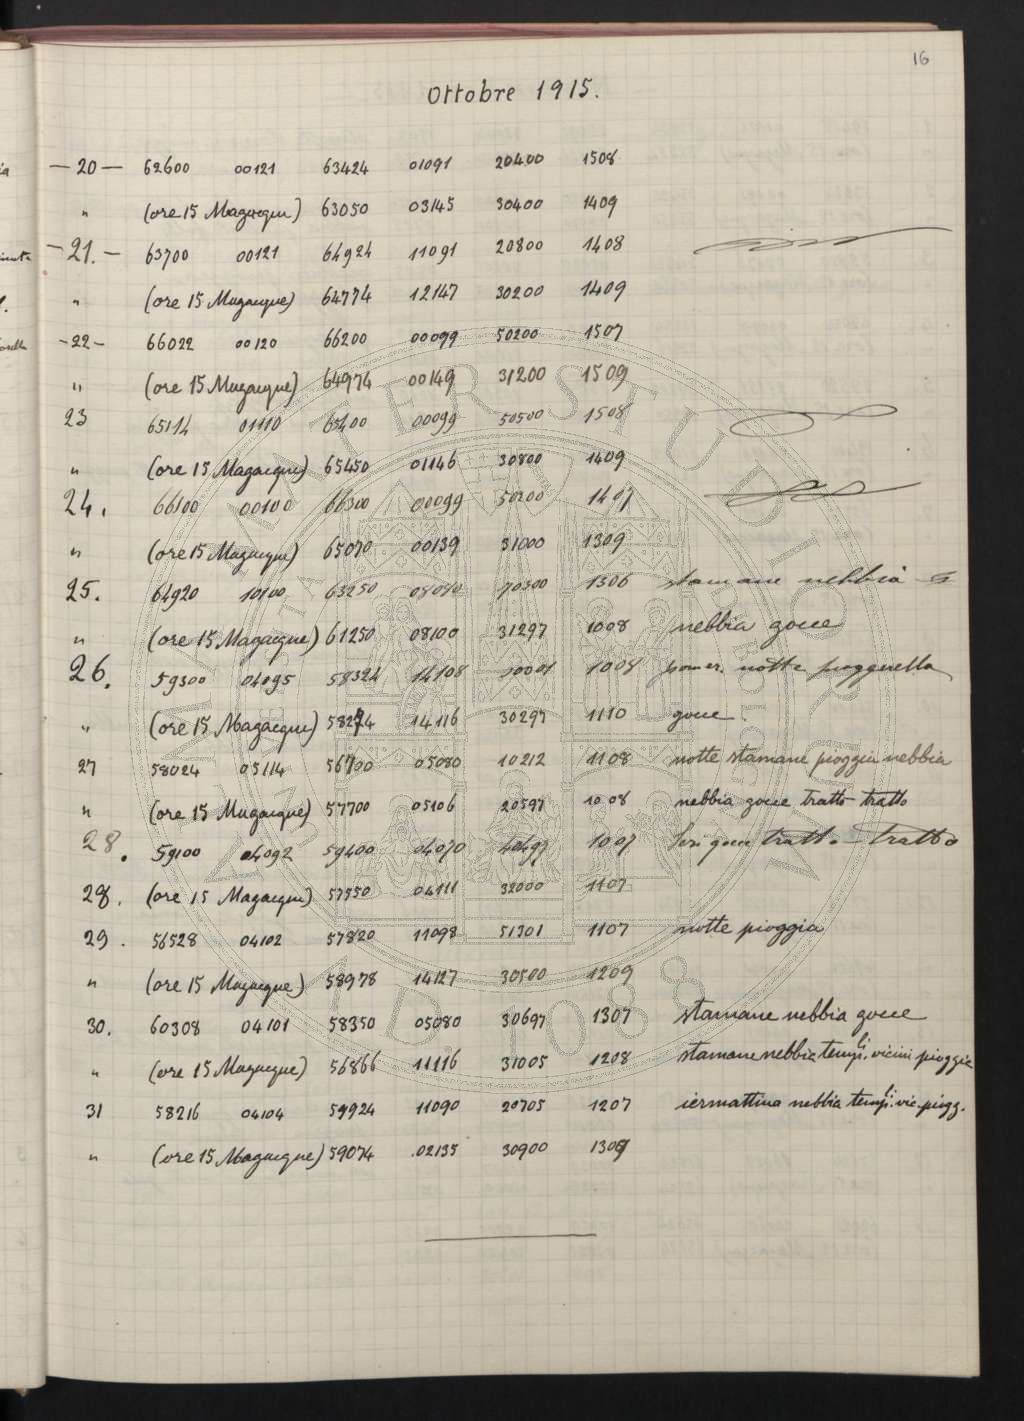 16
Ottobre 1915.
— 20 — 62600 00121 63424 01091 20400 1508
" (ore 15 Magacque) 63050 03145 30400 1409
— 21. — 63700 00121 64924 11091 20800 1408
" (ore 15 Magacque) 64774 12147 30200 1409
— 22 — 66022 00120 66200 00099 50200 1507
" (ore 15 Magacque) 64974 00149 31200 1509
23 65114 01110 65400 00099 50500 1508
" (ore 15 Magacque) 65450 01146 30800 1409
24. 66100 00100 66300 00099 50200 1407
" (ore 15 Magacque) 65070 00139 31000 1309
25. 64920 10100 63250 08090 70300 1306 stamane nebbia
" (ore 15 Magacque) 61250 08100 31297 1008 nebbia gocce
26. 59300 04095 58324 14108 1008 pomer. notte pioggerella
" (ore 15 Magacque) 58274 14116 30297 1110 gocce
27 58024 05114 56700 05080 10212 1108 notte stamane pioggia nebbia
" (ore 15 Magacque) 57700 05106 20597 1008 nebbia gocce tratto tratto
28. 59100 04092 59400 04070 1007 tratto tratto
28. (ore 15 Magacque) 57550 04111 32000 1107
29. 56528 04102 57820 11098 51301 1107 notte pioggia
" (ore 15 Magacque) 58978 14127 30500 1209
30. 60308 04101 58350 05080 30697 1307 stamane nebbia gocce
" (ore 15 Magacque) 56866 11116 31005 1208 stamane nebbia templi. vicini pioggia
31 58216 04104 59924 11090 20705 1207 iermattina nebbia templi. vic. piogg.
" (ore 15 Magacque) 59074 02135 30900 1309
ALMA MATER STUDIORUM
A.D. 1088